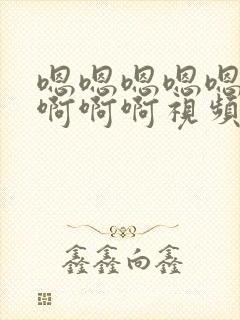 嗯嗯嗯嗯嗯
啊啊啊視頻
鑫鑫向鑫